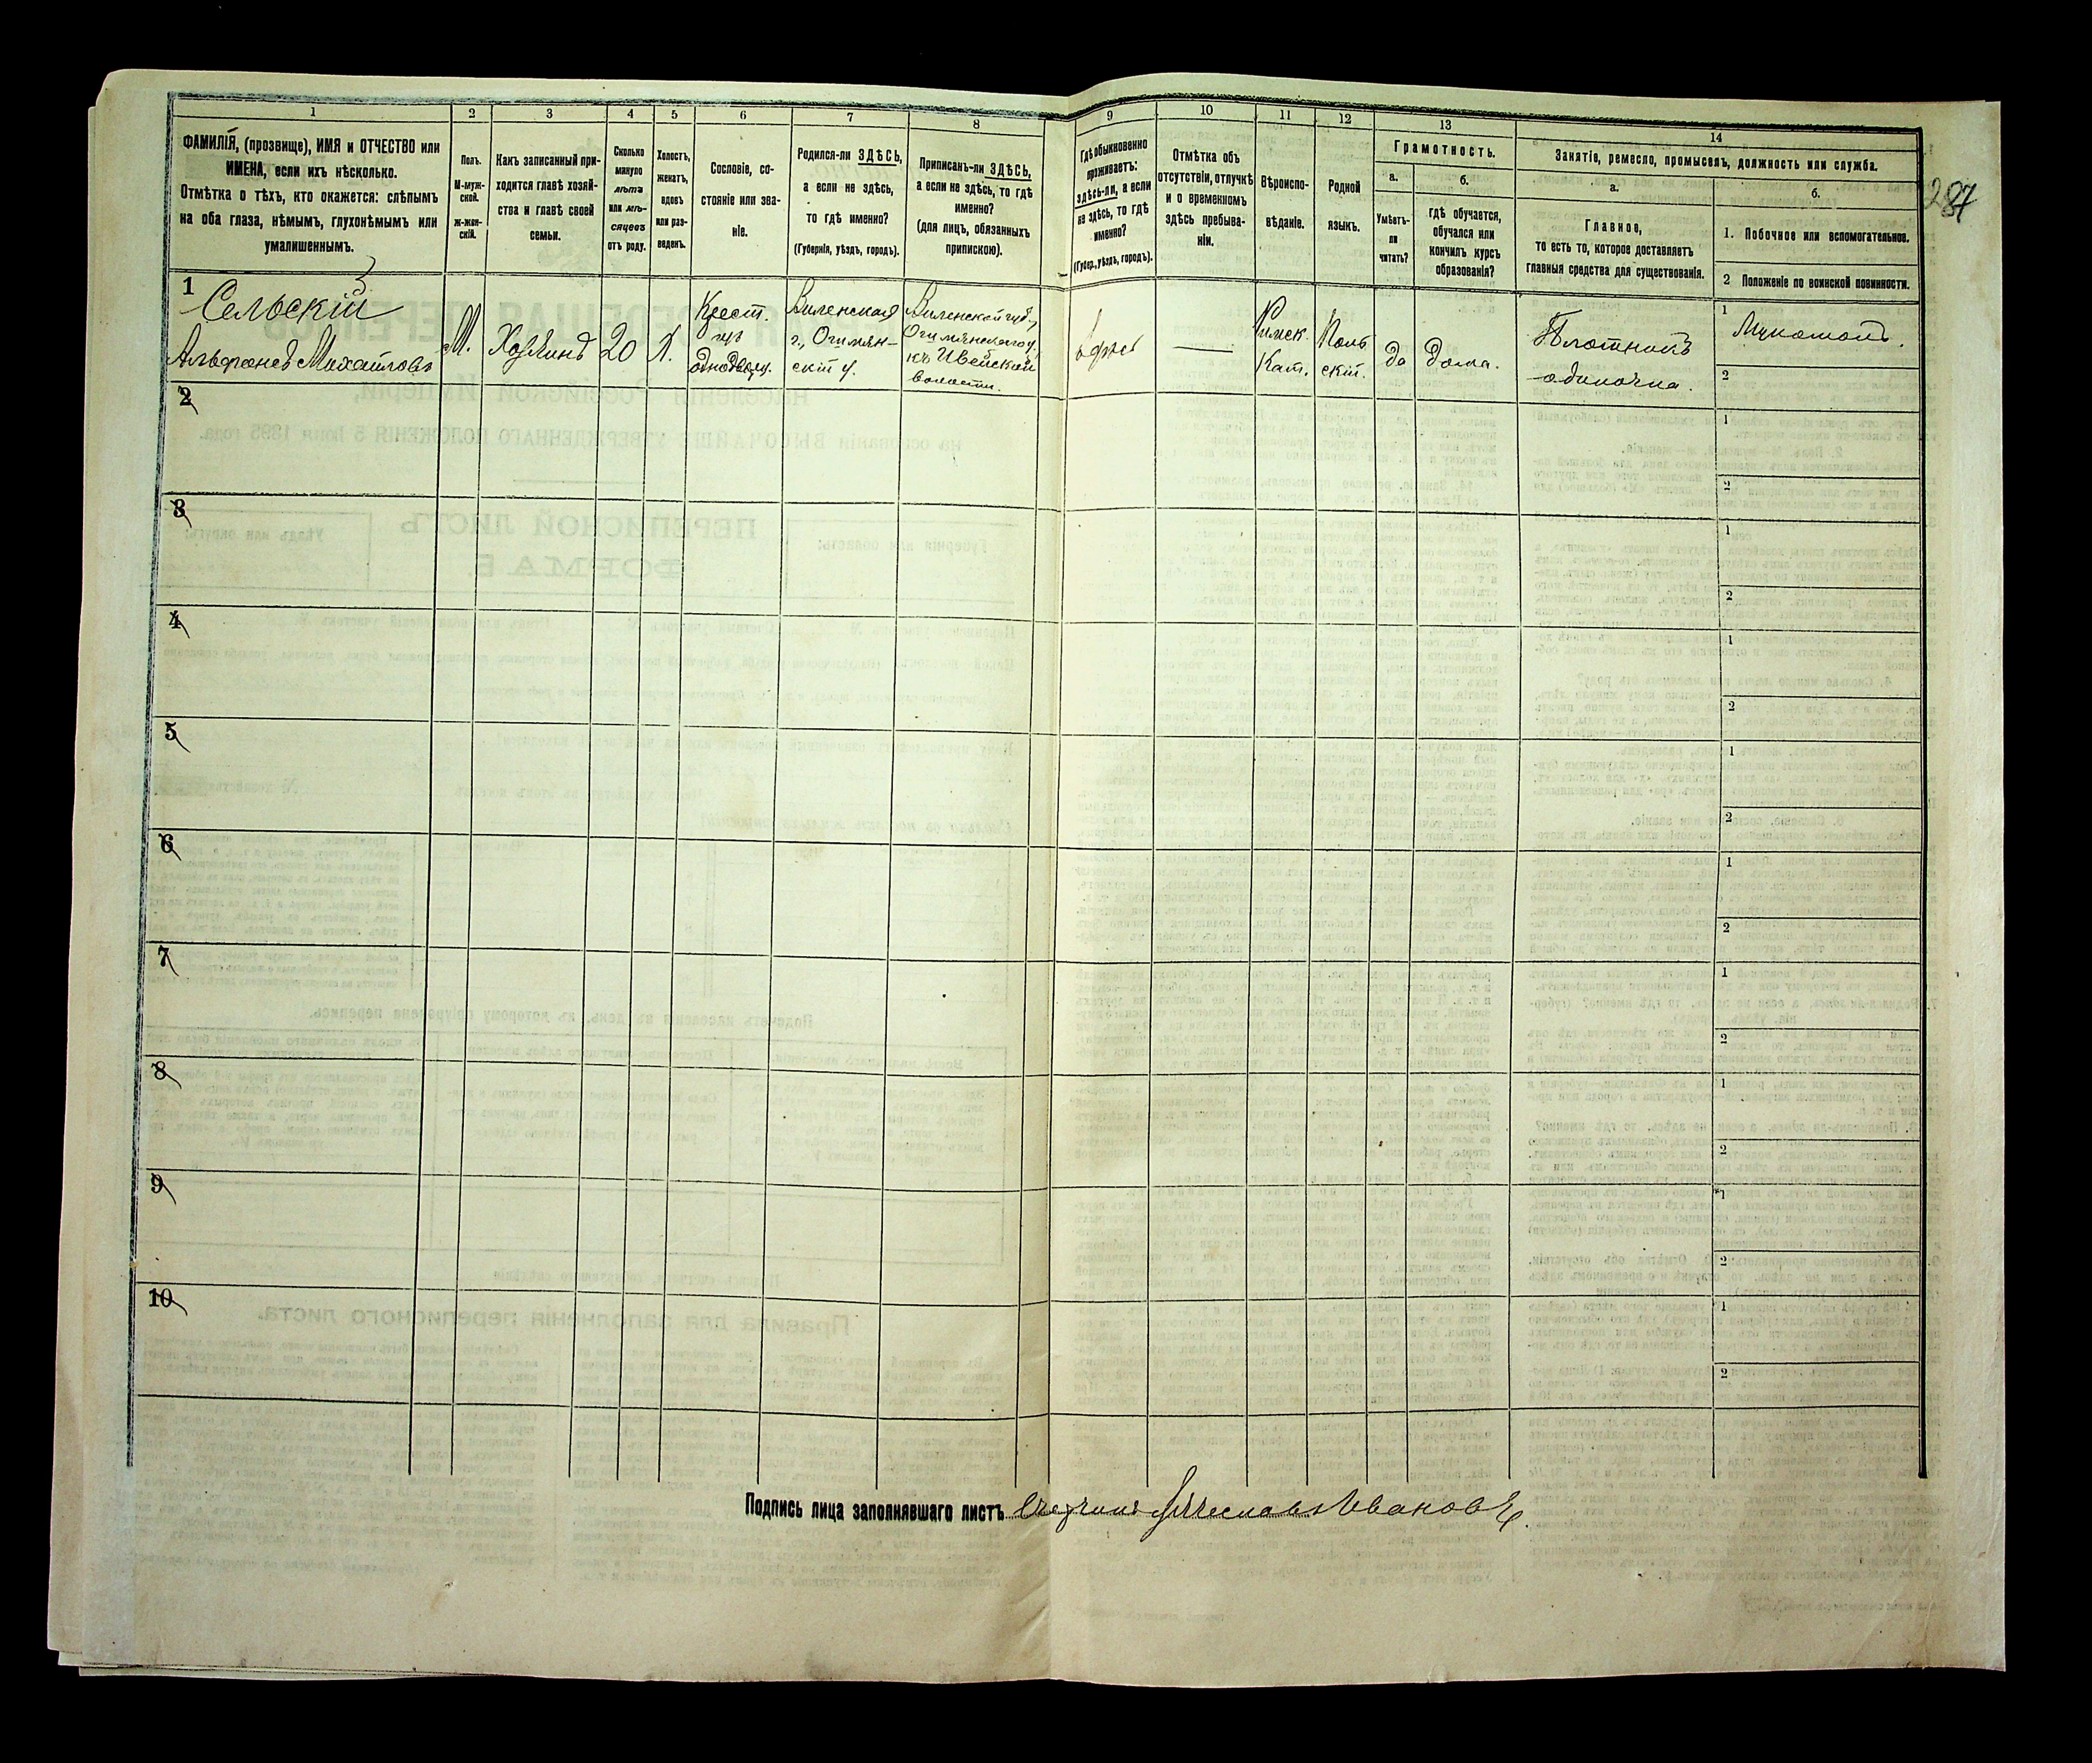 1
2
3
4
5
6
7
8
9
10
11
12
13
14
ФАМИЛІЯ, (прозвище), ИМЯ и ОТЧЕСТВО или
ИМЕНА, если ихъ нѣсколько.
Отмѣтка о тѣхъ, кто окажется: слѣпымъ
на оба глаза, нѣмымъ, глухонѣмымъ или
умалишеннымъ.
Полъ.
М-муж-
ской.
ж-жен-
скій.
Какъ записанный при-
ходится главѣ хозяй-
ства и главѣ своей
семьи.
Сколько
минуло
лѣтъ
или мѣ-
сяцевъ
отъ роду.
Холостъ,
женатъ,
вдовъ
или раз-
веденъ.
Сословіе, со-
стояніе или зва-
ніе.
Родился-ли ЗДѢСЬ,
а если не здѣсь,
то гдѣ именно?
(Губернія, уѣздъ, городъ).
Приписанъ-ли ЗДѢСЬ,
а если не здѣсь, то гдѣ
именно?
(для лицъ, обязанныхъ
припискою).
Гдѣ обыкновенно
проживаетъ:
здѣсь-ли, а если
не здѣсь, то гдѣ
именно?
(Губер., уѣздъ, городъ).
Отмѣтка объ
отсутствіи, отлучкѣ
и о временномъ
здѣсь пребыва-
ніи.
Вѣроиспо-
вѣданіе.
Родной
языкъ.
Грамотность.
а.
б.
Умѣетъ-
ли
читать?
гдѣ обучается,
обучался или
кончилъ курсъ
образованія?
Занятіе, ремесло, промыселъ, должность или служба.
а.
б.
Главное,
то есть то, которое доставляетъ
главныя средства для существованія.
1. Побочное или вспомогательное.
2 Положеніе по воинской повинности.
287
1
Сельскій
Альфонсъ Михайловъ
М.
Хозяинъ
20
Х.
Крест.
изъ
однодворц.
Виленская
г., Ошмян-
скій у.
Виленской губ.,
Ошмянского у.
къ Ивейской
волости.
здѣсь
Римск.
Кат.
Поль
скій.
да
Дома.
Плотникъ
одиночка.
1
Мукомолъ.
2
2
1
2
3
1
2
4
1
2
5
1
2
6
1
2
7
1
2
8
1
2
9
1
2
10
1
2
Подпись лица заполнявшаго листъ Счетчикъ Вячеславъ Ивановъ